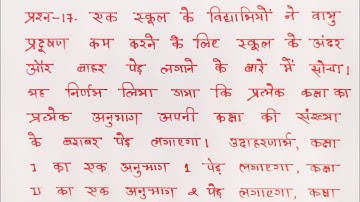 प्रश्न-17. एक स्कूल के विद्यार्थियों ने वायु
प्रदूषण कम करने के लिए स्कूल के अंदर
और बाहर पेड़ लगाने के बारे में सोचा।
यह निर्णय लिया गया कि प्रत्येक कक्षा का
प्रत्येक अनुभाग अपनी कक्षा की संख्या
के बराबर पेड़ लगाएगा। उदाहरणार्थ, कक्षा
I का एक अनुभाग 1 पेड़ लगाएगा, कक्षा
II का एक अनुभाग 2 पेड़ लगाएगा, कक्षा